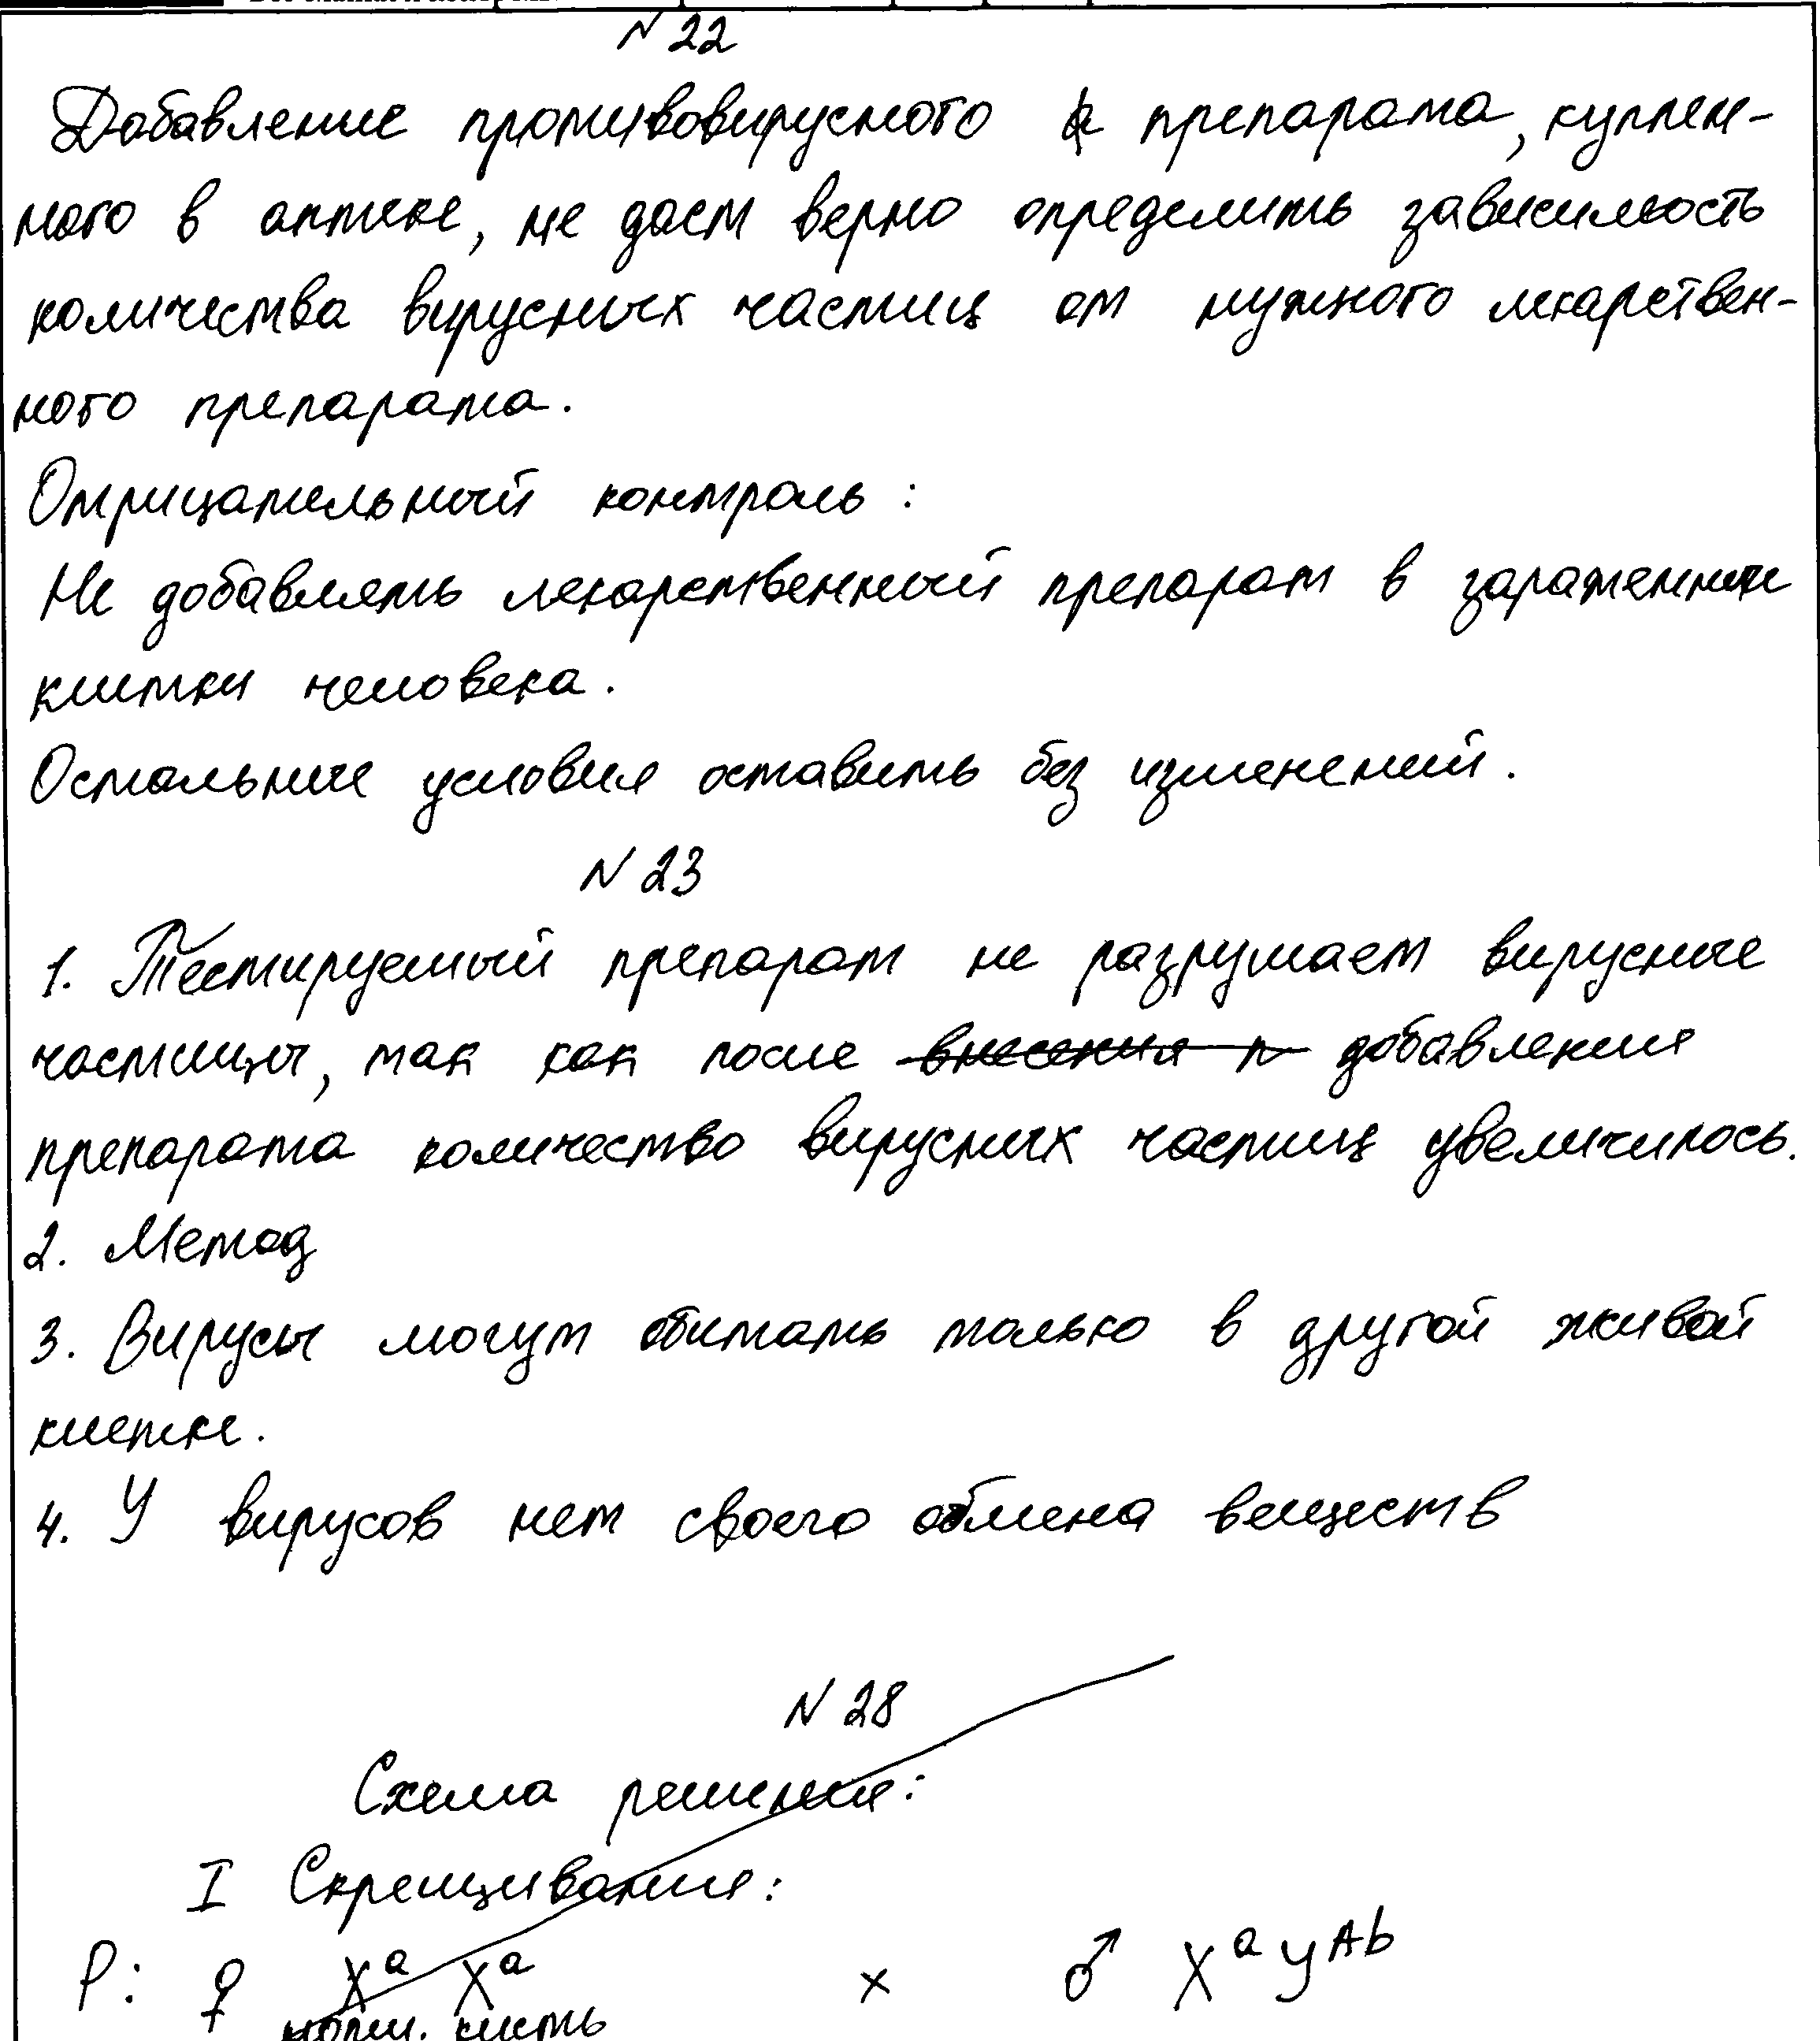 N 22
Добавление противовирусного препарата, куплен-
ного в аптеке, не даст верно определить зависимость
количества вирусных частиц от нужного лекарствен-
ного препарата.
Отрицательный контроль:
Не добавлять лекарственный препарат в зараженные
клетки человека.
Остальные условия оставить без изменений.
N 23
1. Тестируемый препарат не разрушает вирусные
частицы, так как после внесения п добавления
препарата количество вирусных частиц увеличилось.
2. Метод
3. Вирусы могут обитать только в другой живой
клетке.
4. У вирусов нет своего обмена веществ
N 28
Схема решения:
I Скрещивание:
P: ♀ X^a X^a × ♂ X^a Y^Ab
норм. кисть